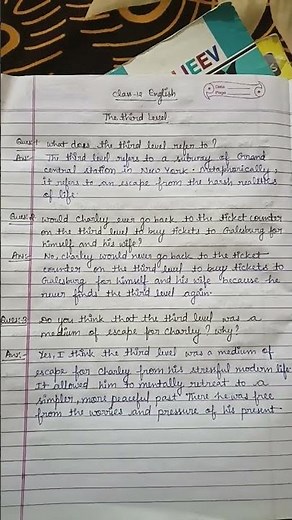 JEEV
Class-12 English
Date
Page
The third Level
Ques:1 What does the third level refer to?
Ans:- The third level refers to a subway of Grand
central station in New York. Metaphorically,
it refers to an escape from the harsh realities
of life.
Ques:2 Would Charley ever go back to the ticket counter
on the third level to buy tickets to Galesburg for
himself and his wife?
Ans:- No, Charley would never go back to the ticket
counter on the third level to buy tickets to
Galesburg for himself and his wife because he
never finds the third level again.
Ques:3 Do you think that the third level was a
medium of escape for Charley? Why?
Ans:- Yes, I think the third level was a medium of
escape for Charley from his stressful modern life.
It allowed him to mentally retreat to a
simpler, more peaceful past. There he was free
from the worries and pressure of his present.